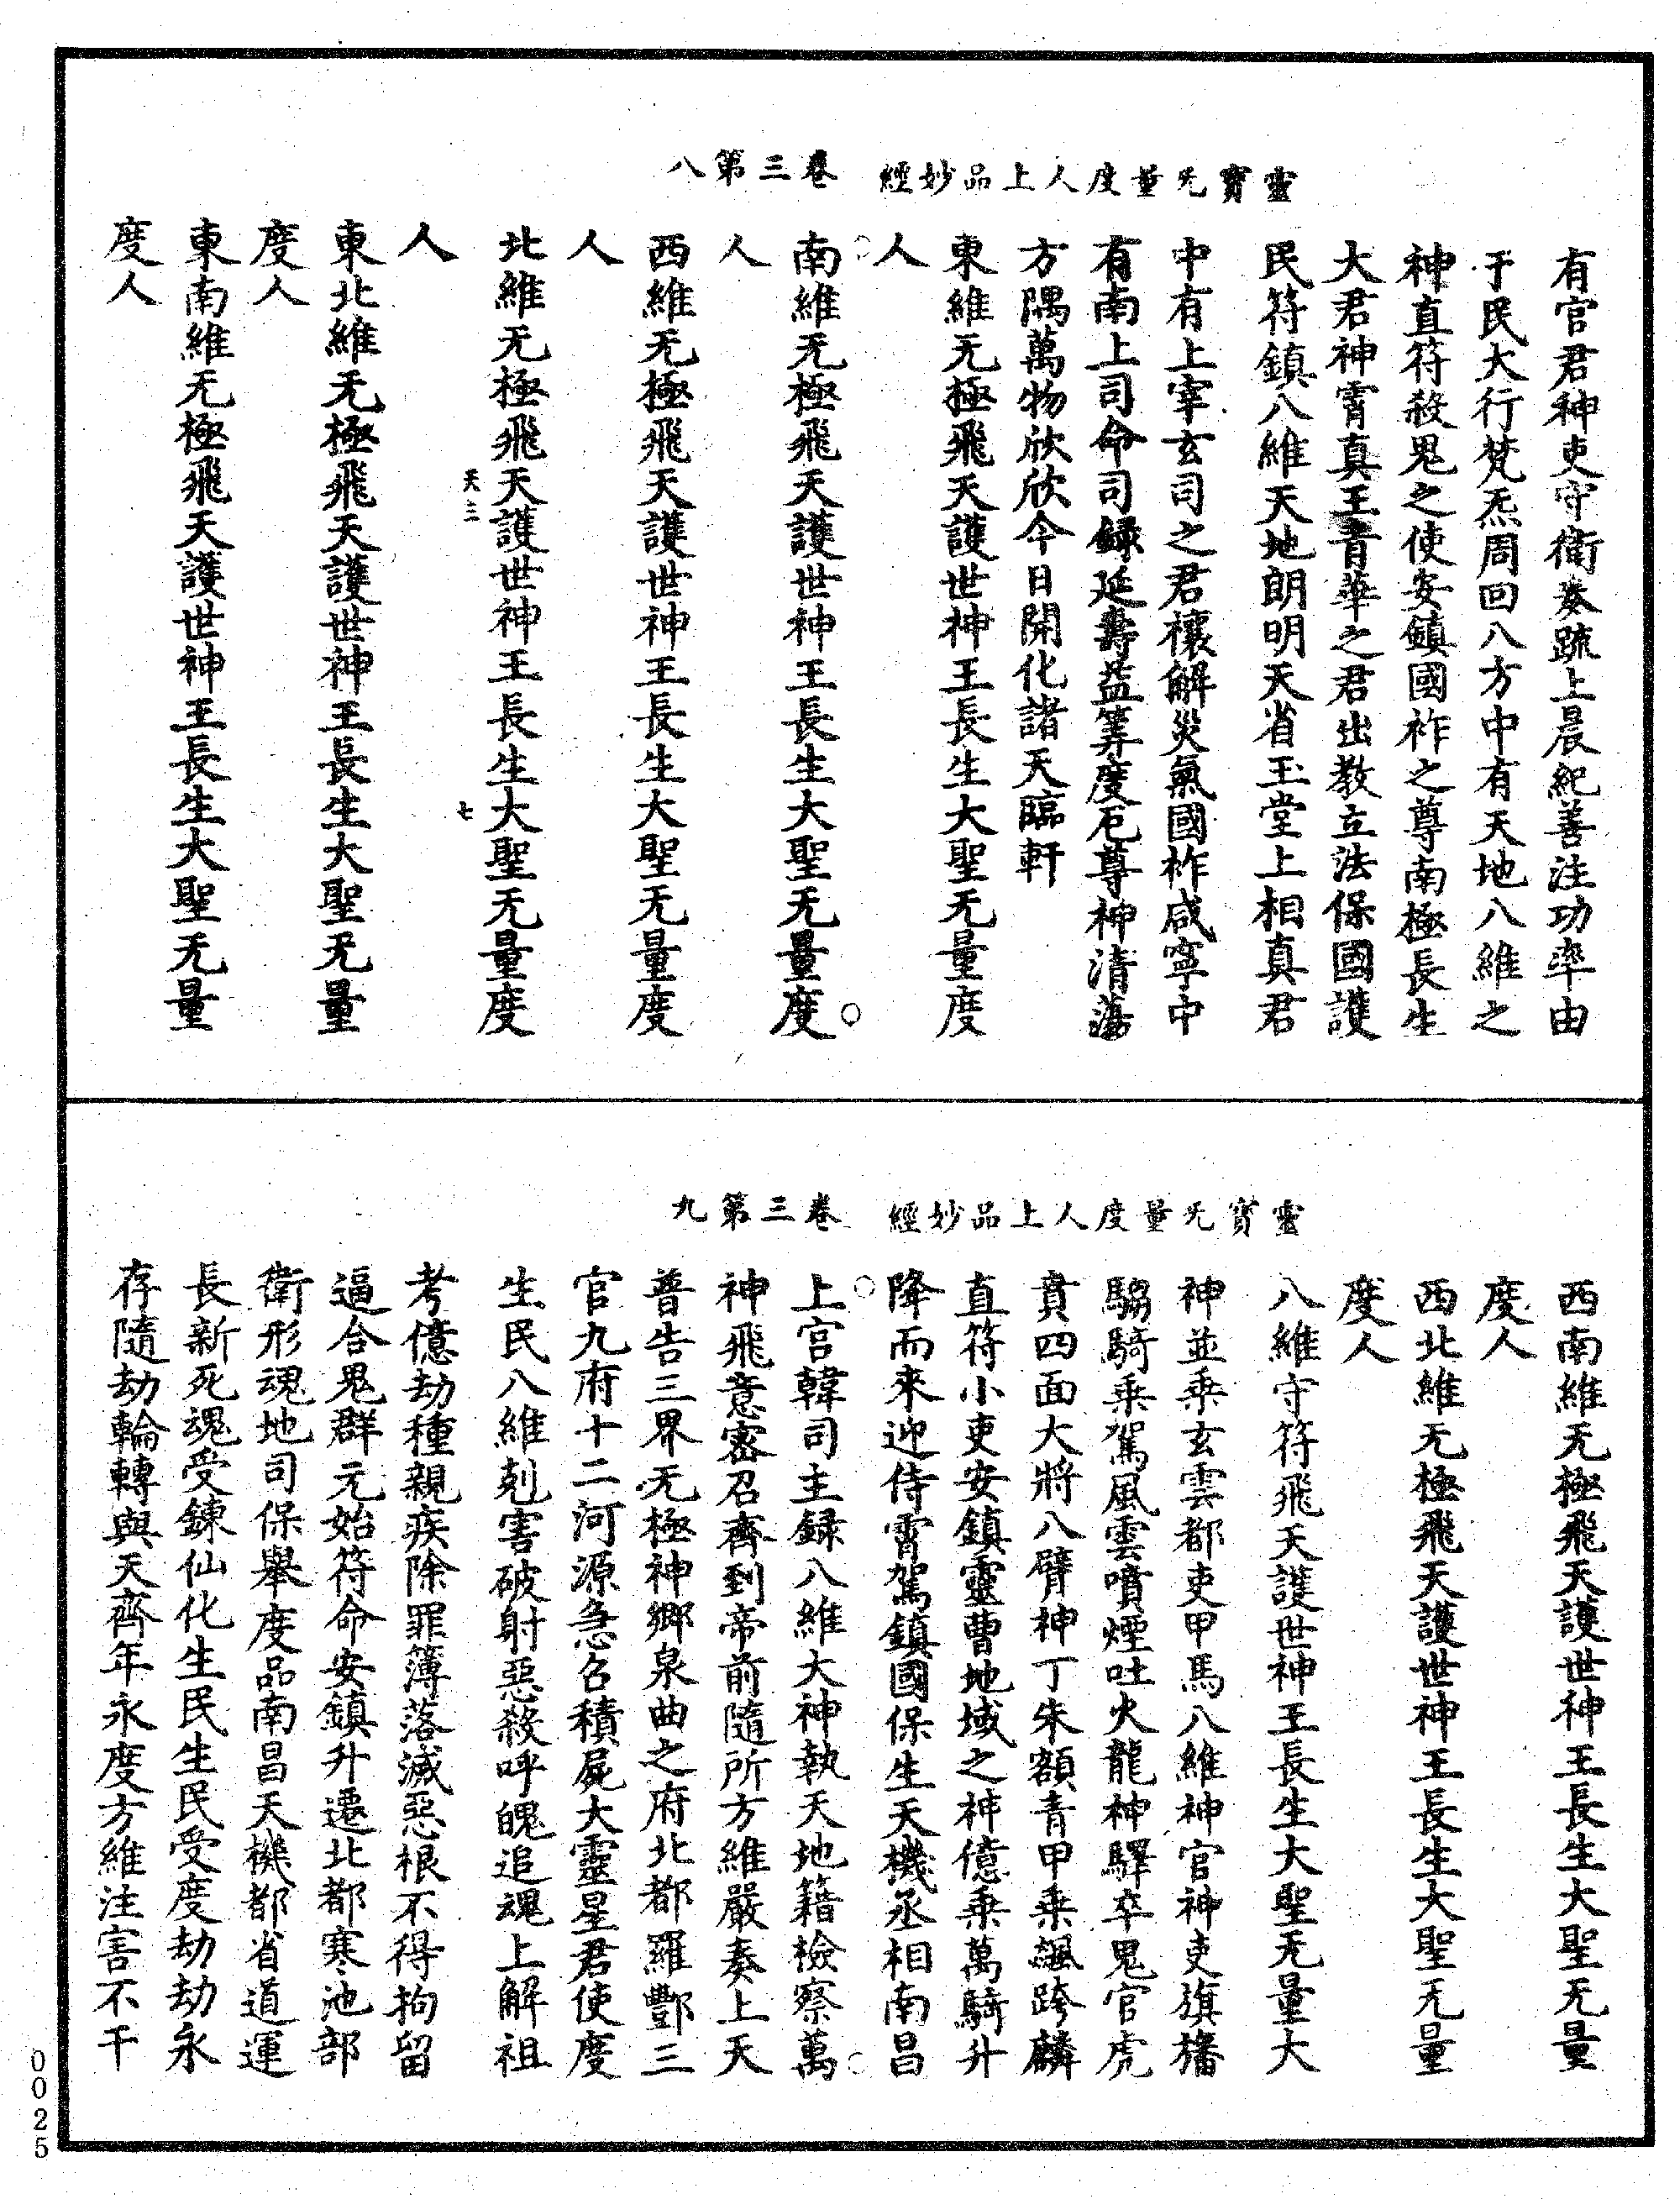 靈寶无量度人上品妙經　卷三第八
有官君神吏守衛奏疏上晨紀善注功率由
于民大行梵炁周回八方中有天地八維之
神直符殺鬼之使安鎮國祚之尊南極長生
大君神霄真王青華之君出教立法保國護
民符鎮八維天地朗明天省玉堂上相真君
中有上宰玄司之君禳解災氣國祚咸寧中
有南上司命司録延壽益筭度厄尊神清蕩
方隅萬物欣欣今日開化諸天臨軒
東維无極飛天護世神王長生大聖无量度
人
南維无極飛天護世神王長生大聖无量度
人
西維无極飛天護世神王長生大聖无量度
人
北維无極飛天護世神王長生大聖无量度
天三　七
人
東北維无極飛天護世神王長生大聖无量
度人
東南維无極飛天護世神王長生大聖无量
度人
靈寶无量度人上品妙經　卷三第九
西南維无極飛天護世神王長生大聖无量
度人
西北維无極飛天護世神王長生大聖无量
度人
八維守符飛天護世神王長生大聖无量大
神並乘玄雲都吏甲馬八維神官神吏旗旛
騶騎乘駕風雲噴煙吐火龍神驛卒鬼官虎
賁四面大將八臂神丁朱額青甲乘飈跨麟
直符小吏安鎮靈曹地域之神億乘萬騎升
降而來迎侍霄駕鎮國保生天機丞相南昌
上宮韓司主録八維大神執天地籍檢察萬
神飛意密召齊到帝前隨所方維嚴奏上天
普告三界无極神鄉泉曲之府北都羅酆三
官九府十二河源急召積屍大靈星君使度
生民八維剋害破射惡殺呼魄追魂上解祖
考億劫種親疾除罪簿落滅惡根不得拘留
逼合鬼群元始符命安鎮升遷北都寒池部
衛形魂地司保舉度品南昌天機都省道運
長新死魂受鍊仙化生民生民受度劫劫永
存隨劫輪轉與天齊年永度方維注害不干
0025